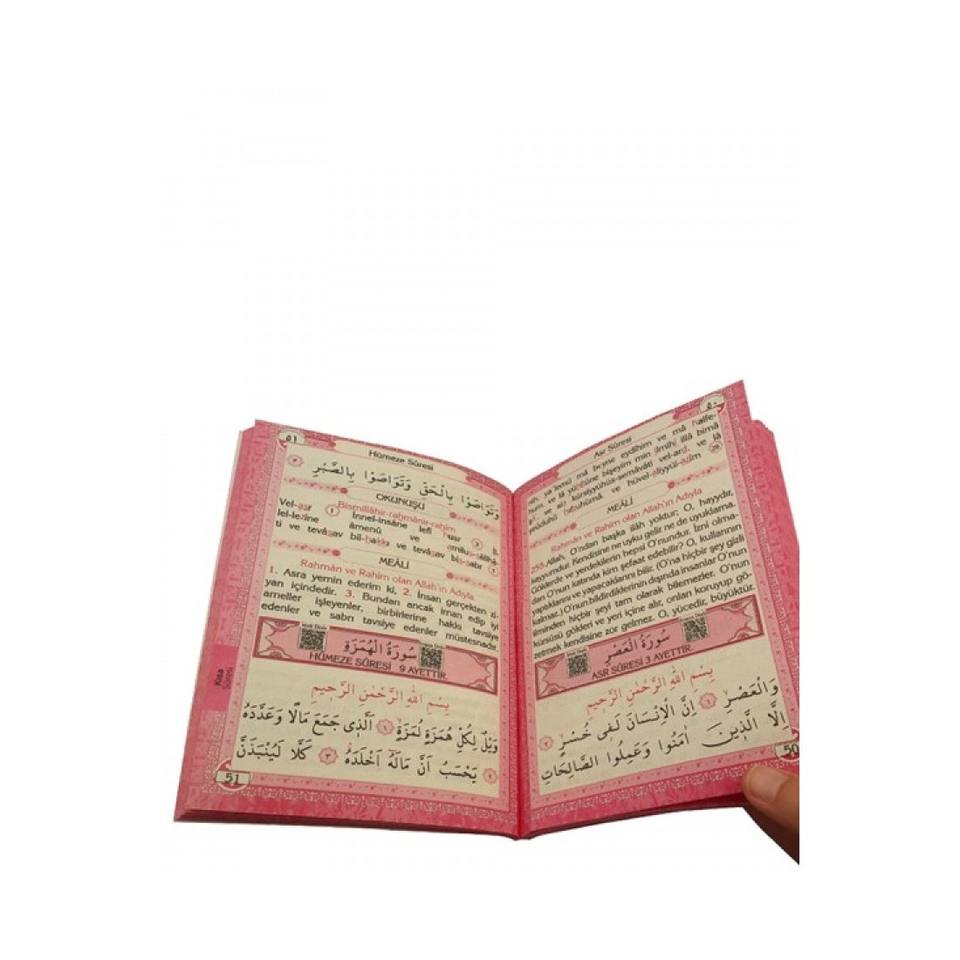 ٥٠
Asr Sûresi
MEÂLİ
Rahmân ve Rahim olan Allah'ın Adıyla
255. Allah, O'ndan başka ilâh yoktur; O, hayydır,
kayyumdur. Kendisine ne uyku gelir ne de uyuklama.
Göklerde ve yerdekilerin hepsi O'nundur. İzni olma-
dan O'nun katında kim şefaat edebilir? O, kullarının
yaptıklarını ve yapacaklarını bilir. (O'na hiçbir şey gizli
kalmaz.) O'nun bildirdiklerinin dışında insanlar O'nun
ilminden hiçbir şeyi tam olarak bilemezler. O'nun
kürsüsü gökleri ve yeri içine alır, onları koruyup gö-
zetmek kendisine zor gelmez. O, yücedir, büyüktür.
سُورَةُ الْعَصْرِ
ASR SÛRESİ 3 AYETTİR.
بِسْمِ اللهِ الرَّحْمٰنِ الرَّحِيمِ
وَالْعَصْرِ ۙ ١ اِنَّ الْاِنْسَانَ لَفِى خُسْرٍ ۙ ٢
اِلَّا الَّذِينَ اٰمَنُوا وَعَمِلُوا الصَّالِحَاتِ
50
٥١
Hümeze Sûresi
وَتَوَاصَوْا بِالْحَقِّ وَتَوَاصَوْا بِالصَّبْرِ ٣
OKUNUŞU
Bismillâhir-rahmânir-rahîm
Vel-asr 1 İnnel-insâne lefî husr 2 İl-
lel-lezîne âmenû ve amilus-sâliha-
ti ve tevâsav bil-hakkı ve tevâsav bis-sabr 3
MEÂLİ
Rahmân ve Rahim olan Allah'ın Adıyla
1. Asra yemin ederim ki, 2. İnsan gerçekten zi-
yan içindedir. 3. Bundan ancak iman edip iyi
ameller işleyenler, birbirlerine hakkı tavsiye
edenler ve sabrı tavsiye edenler müstesnadır.
سُورَةُ الْهُمَزَةِ
HÜMEZE SÛRESİ 9 AYETTİR.
Kısa
Sûreler
بِسْمِ اللهِ الرَّحْمٰنِ الرَّحِيمِ
وَيْلٌ لِكُلِّ هُمَزَةٍ لُمَزَةٍ ۙ ١ اَلَّذِى جَمَعَ مَالًا وَعَدَّدَهُ
٢ يَحْسَبُ اَنَّ مَالَهُ اَخْلَدَهُ ٣ كَلَّا لَيُنْبَذَنَّ
51